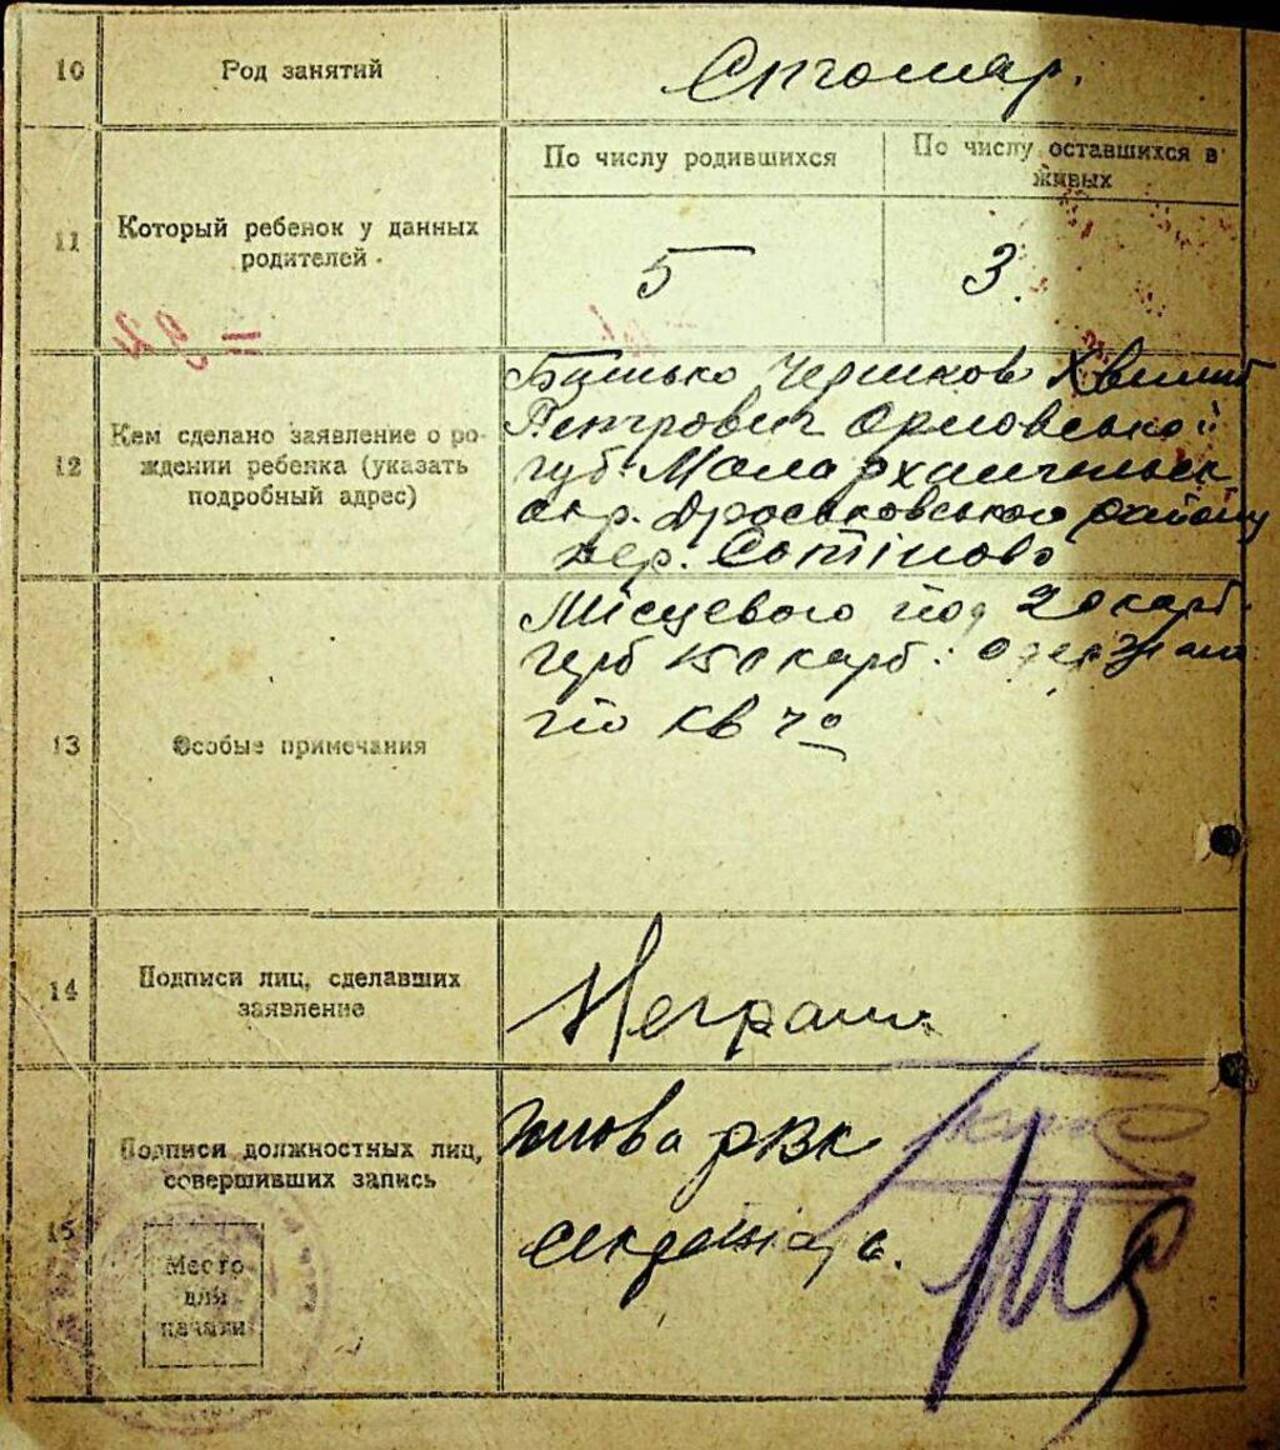 10 Род занятий Столяр.
По числу родившихся По числу оставшихся в живых
11 Который ребенок у данных родителей 5 3.
12 Кем сделано заявление о рождении ребенка (указать подробный адрес)
Батько
Петрович Орловської
губ. Мало рхангельск
окр. Дросьсковського району
дер.
13 Особые примечания
Місцевого под 20 карб.
герб 150 карб:
по кв чо
14 Подписи лиц, сделавших заявление
Неграм.
15 Подписи должностных лиц, совершивших запись
голова РВК
секретарь.
Место
для
печати